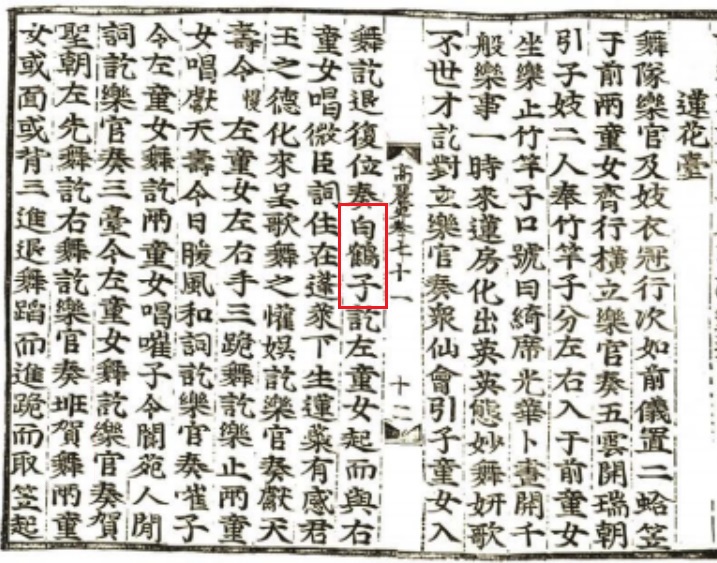 蓮花臺
舞隊樂官及妓衣冠行次如前儀置二蛤笠
于前兩童女齊行橫立樂官奏五雲開瑞朝
引子妓二人奉竹竿子分左右入于前童女
坐樂止竹竿子口號曰綺席光華卜晝開千
般樂事一時來蓮房化出英英態妙舞姸歌
不世才訖對立樂官奏衆仙會引子童女入
高麗史卷七十一 十二
舞訖退復位奏白鶴子訖左童女起而與右
童女唱微臣詞住在蓬萊下生蓮蘂有感君
王之德化來呈歌舞之懽娛訖樂官奏獻天
壽令慢左童女左右手三跪舞訖樂止兩童
女唱獻天壽令日暖風和詞訖樂官奏嗺子
令左童女舞訖兩童女唱嗺子令閬苑人閒
詞訖樂官奏三臺令左童女舞訖樂官奏賀
聖朝左先舞訖右舞訖樂官奏班賀舞兩童
女或面或背三進退舞蹈而進跪而取笠起